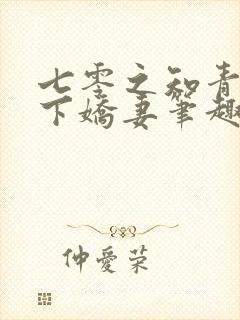 七零之知青
下嬌妻筆趣
仲愛榮